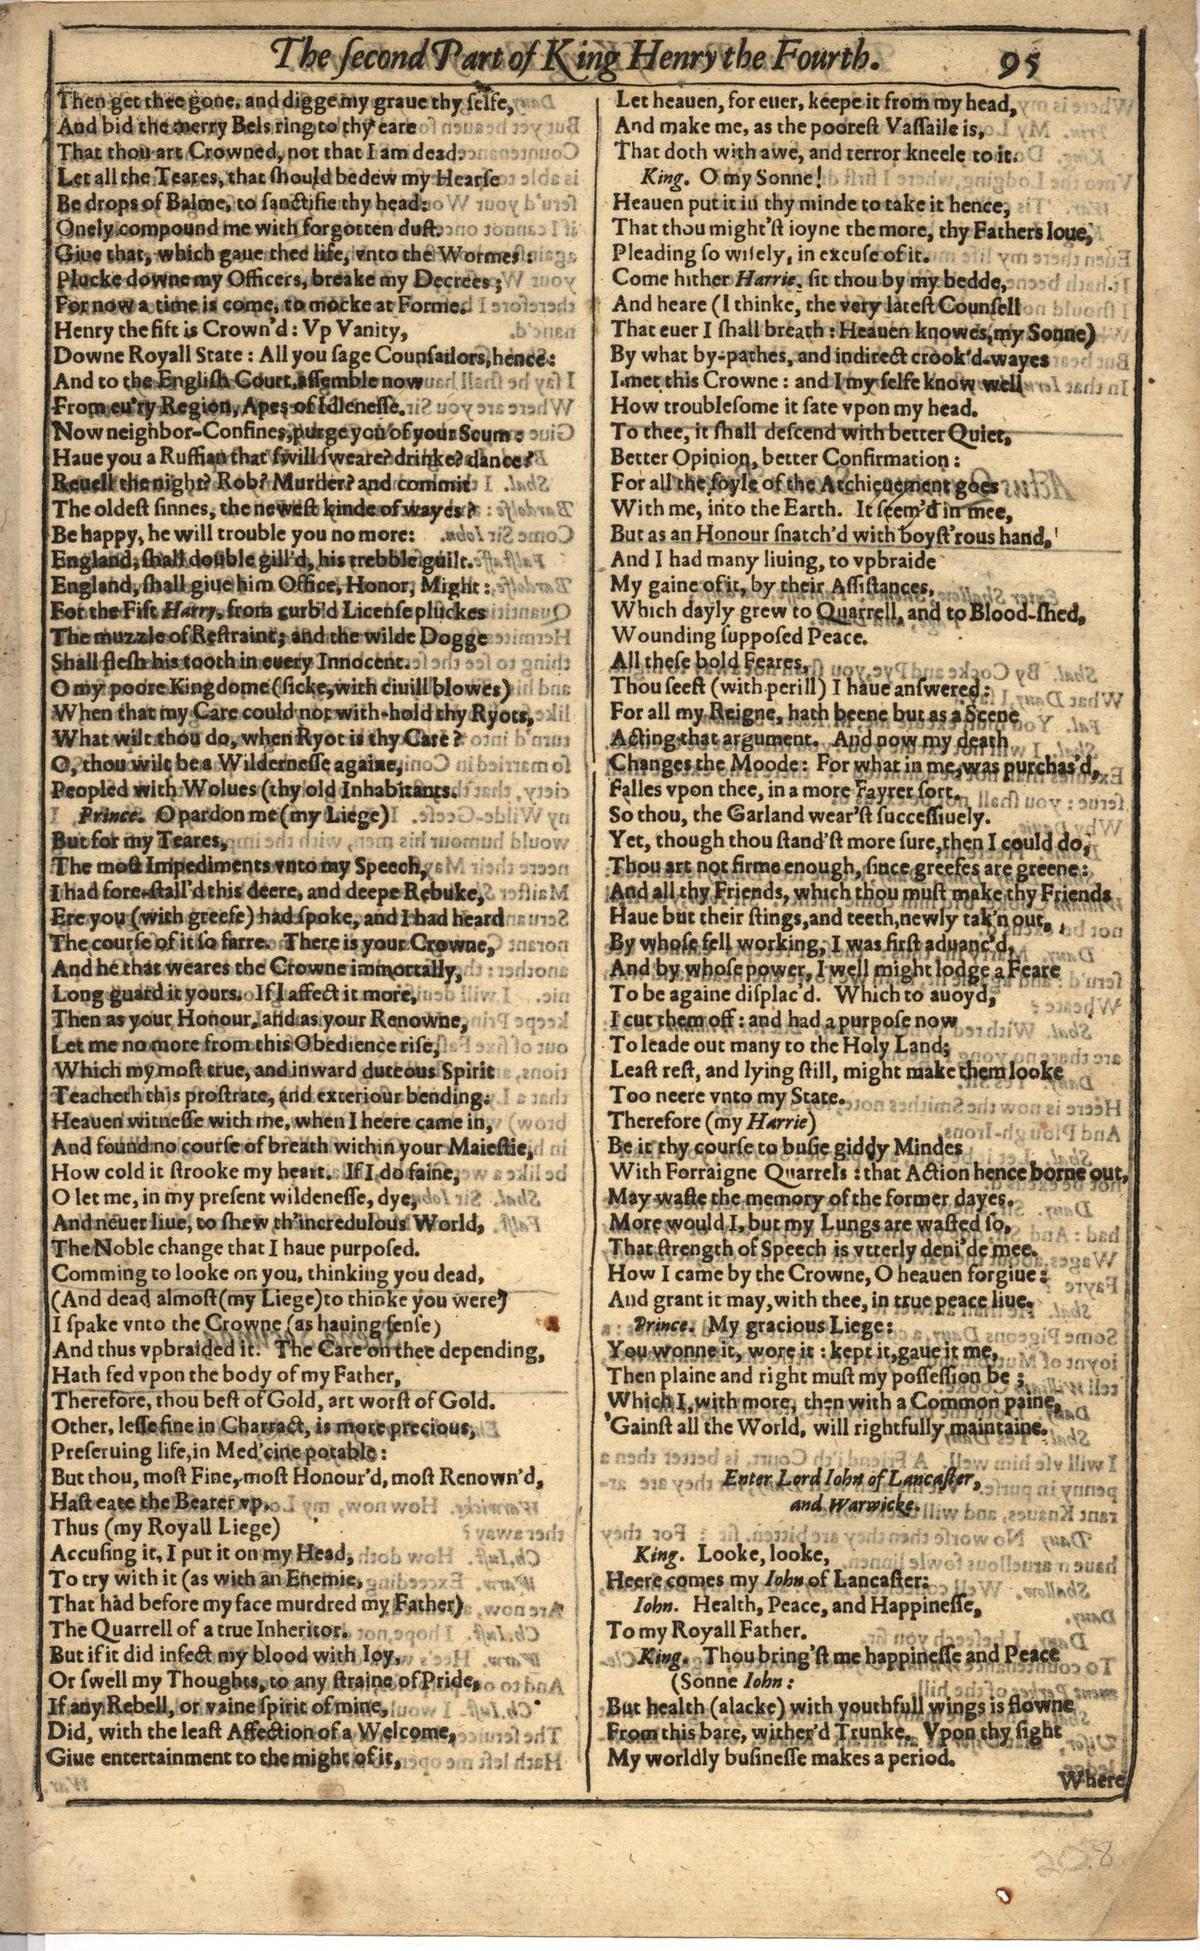 The ſecond Part of King Henry the Fourth. 95
Then get thee gone, and digge my graue thy ſelfe,
And bid the merry Bels ring to thy eare
That thou art Crowned, not that I am dead.
Let all the Teares, that ſhould bedew my Hearſe
Be drops of Balme, to ſanctifie thy head:
Onely compound me with forgotten duſt.
Giue that, which gaue thee life, vnto the Wormes:
Plucke downe my Officers, breake my Decrees;
For now a time is come, to mocke at Forme.
Henry the fift is Crown'd: Vp Vanity,
Downe Royall State: All you ſage Counſailors, hence:
And to the Engliſh Court, aſſemble now
From eu'ry Region, Apes of Idleneſſe.
Now neighbor-Confines, purge you of your Scum:
Haue you a Ruffian that ſwill ſweare? drinke? dance?
Reuell the night? Rob? Murder? and commit
The oldeſt ſinnes, the neweſt kinde of wayes?
Be happy, he will trouble you no more:
England, ſhall double gill'd, his trebble guilt.
England, ſhall giue him Office, Honor, Might:
For the Fift Harry, from curb'd License pluckes
The muzzle of Reſtraint; and the wilde Dogge
Shall fleſh his tooth in euery Innocent.
O my poore Kingdome (ſicke, with ciuill blowes)
When that my Care could not with-hold thy Ryots,
What wilt thou do, when Ryot is thy Care?
O, thou wilt be a Wilderneſſe againe,
Peopled with Wolues (thy old Inhabitants.
Prince. O pardon me (my Liege)
But for my Teares,
The moſt Impediments vnto my Speech,
I had fore-ſtall'd this deere, and deepe Rebuke,
Ere you (with greefe) had ſpoke, and I had heard
The courſe of it ſo farre. There is your Crowne,
And he that weares the Crowne immortally,
Long guard it yours. If I affect it more,
Then as your Honour, and as your Renowne,
Let me no more from this Obedience riſe,
Which my moſt true, and inward duteous Spirit
Teacheth this proſtrate, and exteriour bending.
Heauen witneſſe with me, when I heere came in,
And found no courſe of breath within your Maieſtie,
How cold it ſtrooke my heart. If I do faine,
O let me, in my preſent wildeneſſe, dye,
And neuer liue, to ſhew th'incredulous World,
The Noble change that I haue purpoſed.
Comming to looke on you, thinking you dead,
(And dead almoſt (my Liege) to thinke you were)
I ſpake vnto the Crowne (as hauing ſenſe)
And thus vpbraided it. The Care on thee depending,
Hath fed vpon the body of my Father,
Therefore, thou beſt of Gold, art worſt of Gold.
Other, leſſe fine in Charract, is more precious,
Preſeruing life, in Med'cine potable:
But thou, moſt Fine, moſt Honour'd, moſt Renown'd,
Haſt eate the Bearer vp.
Thus (my Royall Liege)
Accuſing it, I put it on my Head,
To try with it (as with an Enemie,
That had before my face murdred my Father)
The Quarrell of a true Inheritor.
But if it did infect my blood with Ioy,
Or ſwell my Thoughts, to any ſtraine of Pride,
If any Rebell, or vaine ſpirit of mine,
Did, with the leaſt Affection of a Welcome,
Giue entertainment to the might of it,
Let heauen, for euer, keepe it from my head,
And make me, as the pooreſt Vaſſaile is,
That doth with awe, and terror kneele to it.
King. O my Sonne!
Heauen put it in thy minde to take it hence,
That thou might'ſt ioyne the more, thy Fathers loue,
Pleading ſo wiſely, in excuſe of it.
Come hither Harrie, ſit thou by my bedde,
And heare (I thinke, the very lateſt Counſell
That euer I ſhall breath: Heauen knowes, my Sonne)
By what by-pathes, and indirect crook'd-wayes
I met this Crowne: and I my ſelfe know well
How troubleſome it ſate vpon my head.
To thee, it ſhall deſcend with better Quiet,
Better Opinion, better Confirmation:
For all the ſoyle of the Atchieuement goes
With me, into the Earth. It ſeem'd in mee,
But as an Honour ſnatch'd with boyſt'rous hand,
And I had many liuing, to vpbraide
My gaine of it, by their Aſſiſtances,
Which dayly grew to Quarrell, and to Blood-ſhed,
Wounding ſuppoſed Peace.
All theſe bold Feares,
Thou ſeeſt (with perill) I haue anſwered:
For all my Reigne, hath beene but as a Scene
Acting that argument. And now my death
Changes the Moode: For what in me, was purchas'd,
Falles vpon thee, in a more Fayrer ſort.
So thou, the Garland wear'ſt ſucceſſiuely.
Yet, though thou ſtand'ſt more ſure, then I could do,
Thou art not firme enough, ſince greefes are greene:
And all thy Friends, which thou muſt make thy Friends
Haue but their ſtings, and teeth, newly tak'n out,
By whoſe fell working, I was firſt aduanc'd,
And by whoſe power, I well might lodge a Feare
To be againe diſplac'd. Which to auoyd,
I cut them off: and had a purpoſe now
To leade out many to the Holy Land;
Leaſt reſt, and lying ſtill, might make them looke
Too neere vnto my State.
Therefore (my Harrie)
Be it thy courſe to buſie giddy Mindes
With Forraigne Quarrels: that Action hence borne out,
May waſte the memory of the former dayes.
More would I, but my Lungs are waſted ſo,
That ſtrength of Speech is vtterly deni'de mee.
How I came by the Crowne, O heauen forgiue:
And grant it may, with thee, in true peace liue.
Prince. My gracious Liege:
You wonne it, wore it: kept it, gaue it me,
Then plaine and right muſt my poſſeſſion be;
Which I, with more, then with a Common paine,
'Gainſt all the World, will rightfully maintaine.
Enter Lord Iohn of Lancaſter,
and Warwicke.
King. Looke, looke,
Heere comes my Iohn of Lancaſter:
Iohn. Health, Peace, and Happineſſe,
To my Royall Father.
King. Thou bring'ſt me happineſſe and Peace
(Sonne Iohn:
But health (alacke) with youthfull wings is flowne
From this bare, wither'd Trunke. Vpon thy ſight
My worldly buſineſſe makes a period.
Where
208